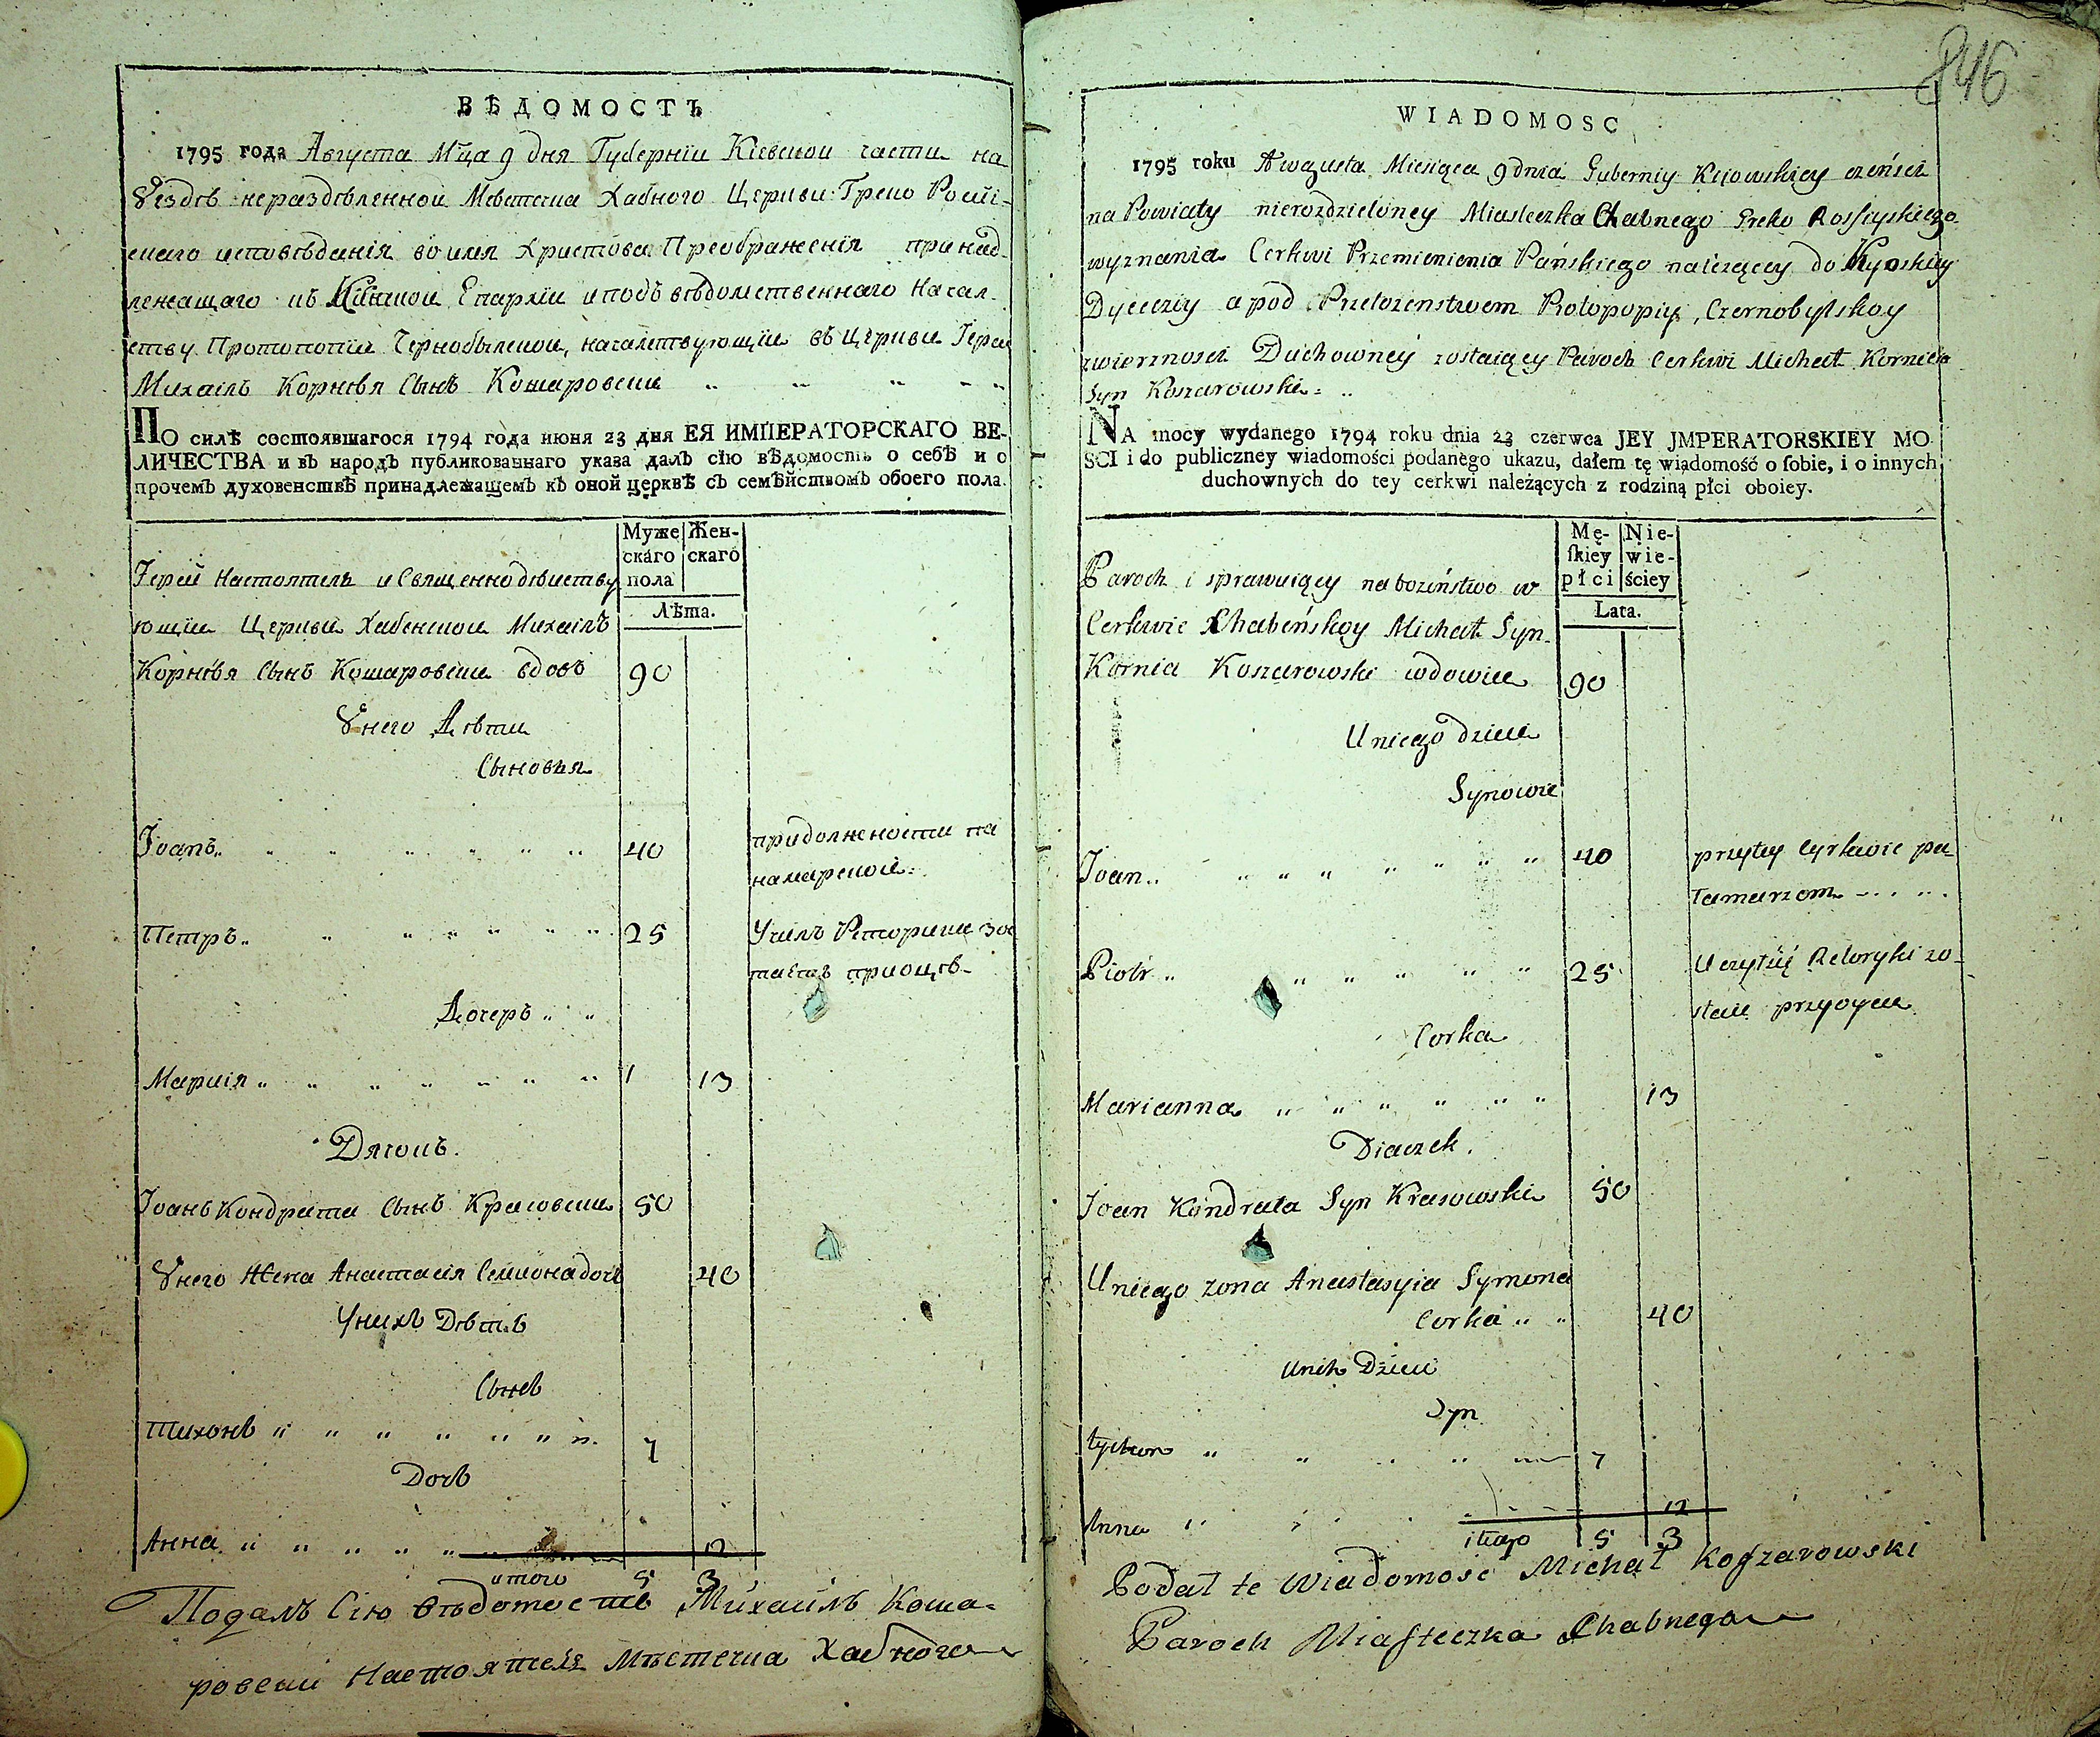 ВѢДОМОСТЪ
1795 года Августа Мца 9 дня Губернїи Кїевской части на
Уездѣ нераздѣленной Мѣстечка Хабного Церкви Греко Россїй-
скаго исповѣданїя во имя Христова Преображенїя принад-
лежащаго къ Кїевской Епархїи и подъ вѣдомственнаго Начал-
ству Протопопїи Чернобылской, началствующїи въ Церкви Іереи
Михаилъ Корнѣя Сынъ Кошаровски
ПО силѣ состоявшагося 1794 года июня 23 дня ЕЯ ИМПЕРАТОРСКАГО ВЕ-
ЛИЧЕСТВА и въ народъ публикованнаго указа далъ сїю вѣдомость о себѣ и о
прочемъ духовенствѣ принадлежащемъ къ оной церквѣ съ семѣйствомъ обоего пола.
Муже Жен-
скаго скаго
пола
Лѣта.
Іерей Настоятель и Священнодѣйству
ющїи Церкви Хабенской Михаилъ
Корнѣя Сынъ Кошаровски вдовъ 90
Унего Дѣти
Сыновья
Іоанъ 40 придолжености па
намарской
Петръ 25 Училъ Реторики зос
таетъ приоцѣ
Дочеръ
Мария 1 13
Дячокъ.
Іоанъ Кондрата Сынъ Красовски 50
Унего Жена Анастасїя Семионадочь 40
Унихъ Дѣтѣ
Сынъ
Тихонъ 7
Дочь
Анна 12
итого 5 3
Подалъ Сїю вѣдомость Михаилъ Коша-
ровски Настоятель Мѣстечка Хабного
846
WIADOMOSC
1795 roku Awgusta Miesiąca 9 dnia Guberniy Kijowskiey cześci
na Powiaty nierozdzieloney Miasteczka Chabnego Greko Rossyiskiego
wyznania Cerkwi Przemienienia Pańskiego należącey do Kyoskiey
Dyeceziy a pod Przełożenstwem Protopopiy, Czernobylskoy
zwierznosci Duchowney zostaiący Paroch Cerkwi Michał Kornieia
Syn Koszarowski
NA mocy wydanego 1794 roku dnia 23 czerwca JEY JMPERATORSKIEY MO
SCI i do publiczney wiadomości podanego ukazu, dałem tę wiadomość o sobie, i o innych
duchownych do tey cerkwi należących z rodziną płci oboiey.
Mę- Nie-
skiey wie-
płci ściey
Lata.
Paroch i sprawuiący nabożeństwo w
Cerkwie Chabeńskoy Michał Syn
Kornia Koszarowski wdowiec 90
Uniego dzieci
Synowie
Joan 40 przytey Cyrkwie pa
lamarzom
Piotr 25 Uczył się Retoryki zo-
staie przyoycu
Corka
Marianna 13
Diaczek.
Joan Kondrata Syn Krasowski 50
Uniego zona Anastasyia Symona
Corka 40
Unih Dzieci
Syn
tychon 7
Anna 12
itago 5 3
Podał te Wiadomosc Michał Koszarowski
Paroch Miasteczka Chabnego